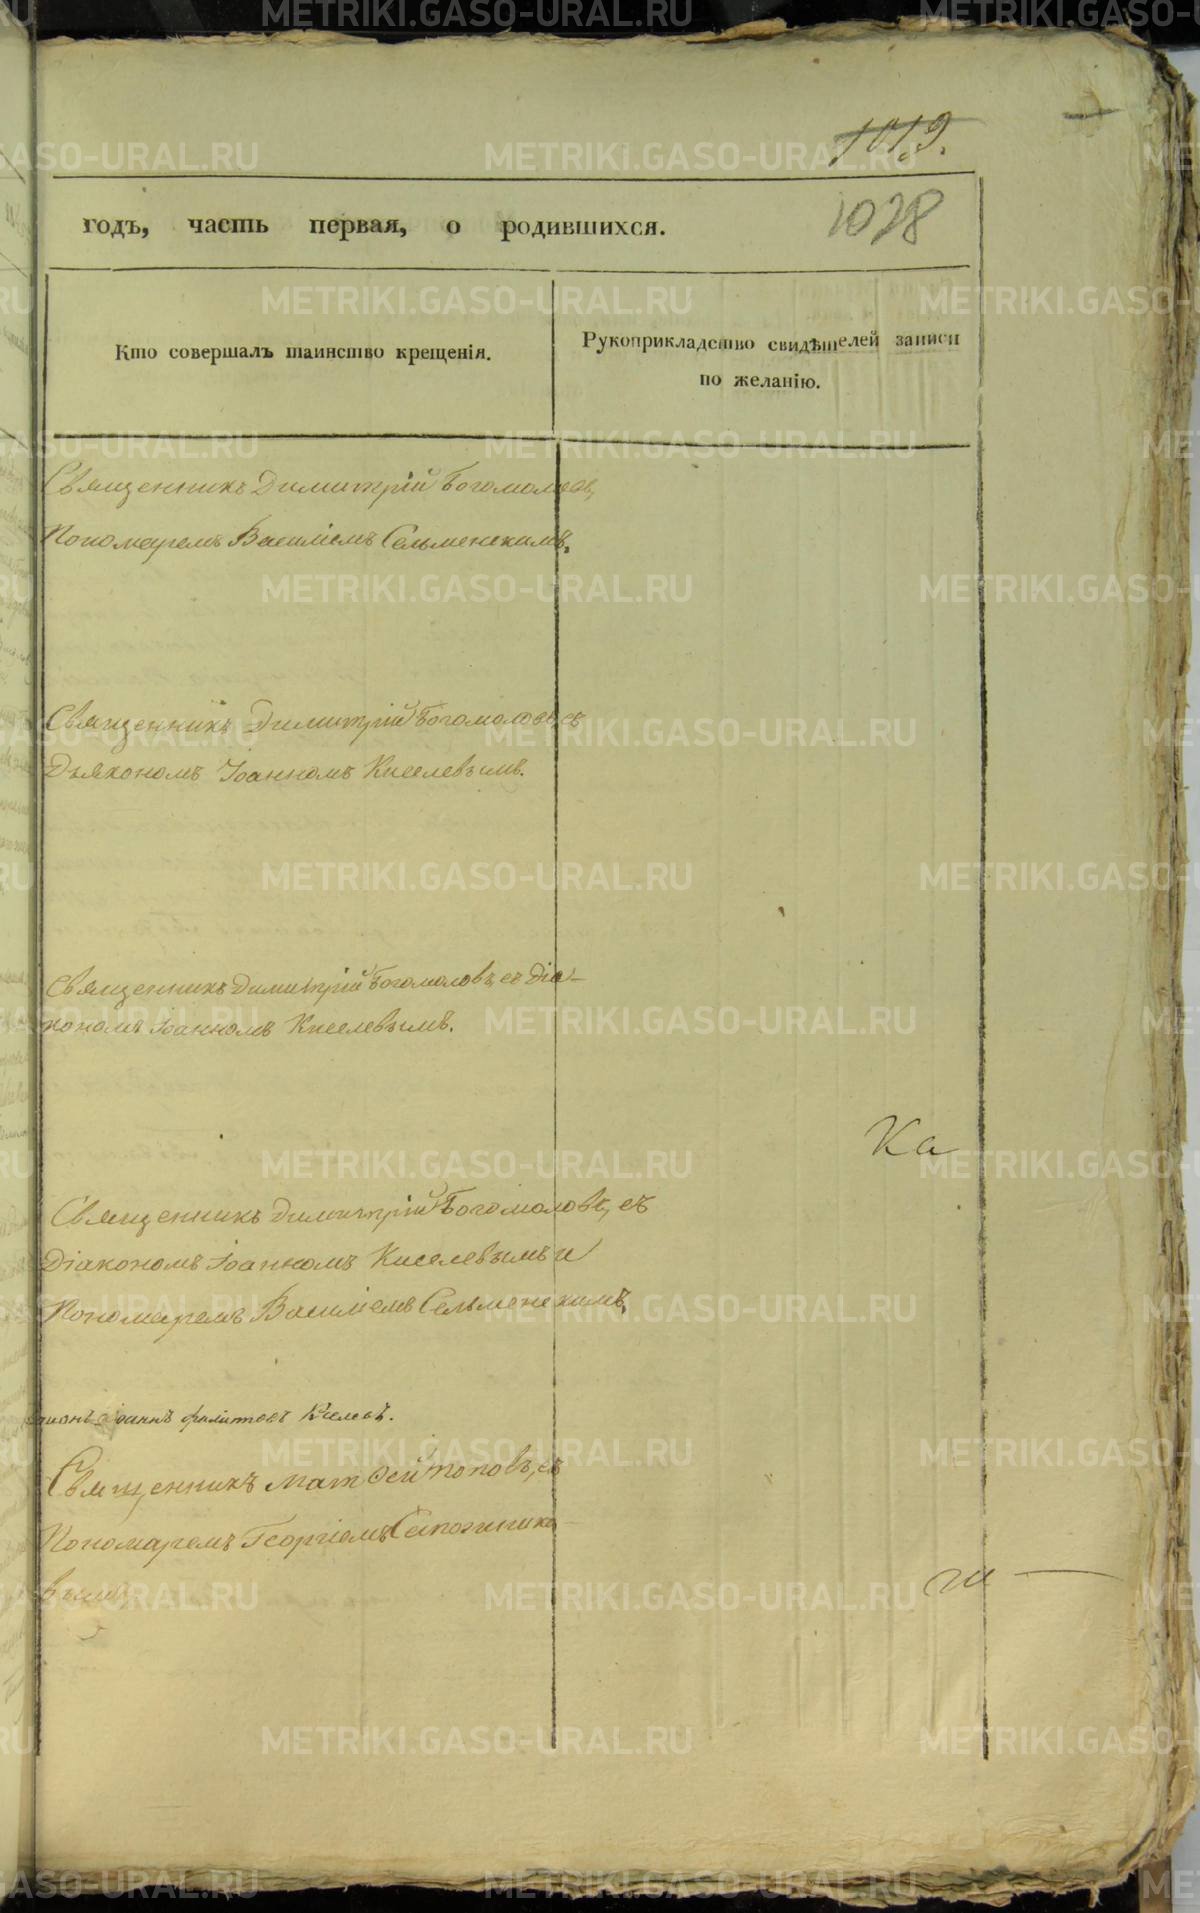 1019.
1028
годъ, часть первая, о родившихся.
Кто совершалъ таинство крещенія.
Рукоприкладство свидѣтелей записи
по желанію.
Священникъ Димитрій Богомоловъ,
Пономаремъ Василіемъ Сельменскимъ.
Священникъ Димитрій Богомоловъ, съ
Дьякономъ Іоанномъ Киселевымъ.
Священникъ Димитрій Богомоловъ, съ Діа-
кономъ Іоанномъ Киселевымъ.
Ка
Священникъ Димитрій Богомоловъ, съ
Діакономъ Іоанномъ Киселевымъ и
Пономаремъ Василіемъ Сельменскимъ,
Іоаннъ Киселевъ.
Священникъ Матѳей Поповъ, съ
Пономаремъ Георгіемъ Сапожнико-
вымъ
METRIKI.GASO-URAL.RU